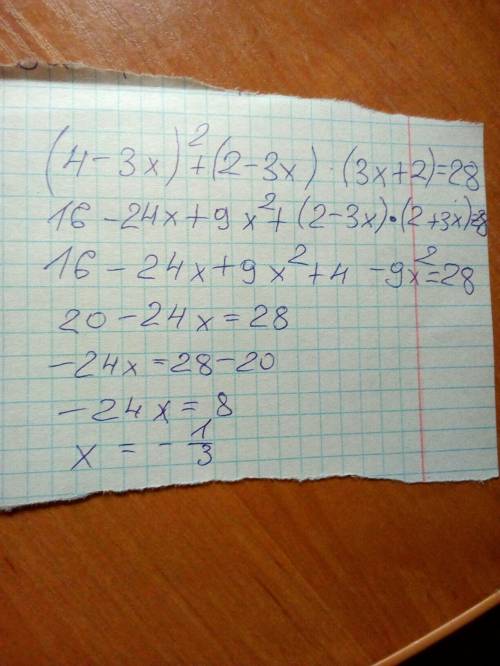 (4-3x)²+(2-3x)·(3x+2)=28
16-24x+9x²+(2-3x)·(2+3x)=28
16-24x+9x²+4-9x²=28
20-24x=28
-24x=28-20
-24x=8
x=-1/3